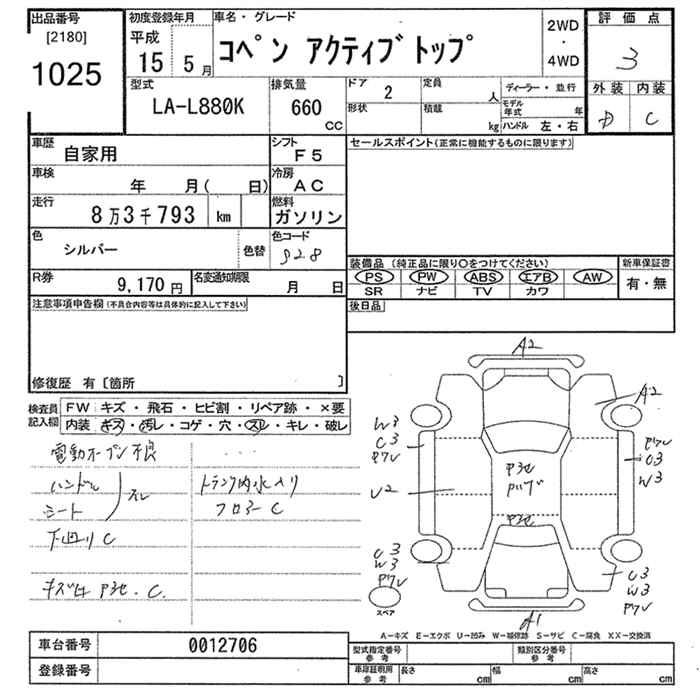 出品番号 初度登録年月 車名・グレード 2WD 評価点
[2180] 平成 コペン アクティブトップ ・ 3
1025 15 5月 4WD
型式 排気量 ドア 2 定員 人 ディーラー・並行 外装 内装
LA-L880K 660 cc 形状 積載 kg モデル年式 年 D C
ハンドル 左・右
車歴 自家用 シフト F5 セールスポイント(正常に機能するものに限ります)
車検 年 月( 日) 冷房 AC
走行 8万3千793 km 燃料 ガソリン
色 シルバー 色替 色コード S28
装備品 (純正品に限り○をつけてください) 新車保証書
R券 9,170円 名変通知期限 月 日 PS PW ABS エアB AW 有・無
SR ナビ TV カワ
注意事項申告欄(不具合内容等は具体的に記入して下さい) 後日品
修復歴 有〔箇所 〕
検査員記入欄 FW キズ・飛石・ヒビ割・リペア跡・×要
内装 キズ・汚レ・コゲ・穴・スレ・キレ・破レ
電動オープン不良
ハンドル
シート スレ
下回りC
トランク内水入り
フロアーC
A2
A2
W3
C3
U2
C3
W3
C3
W3
C3
W3
A1
スペア
A-キズ E-エクボ U-凹み W-補修跡 S-サビ C-腐食 XX-交換済
車台番号 0012706 型式指定番号 参考 類別区分番号 参考
登録番号 車庫証明用 参考 長さ cm 幅 cm 高さ cm